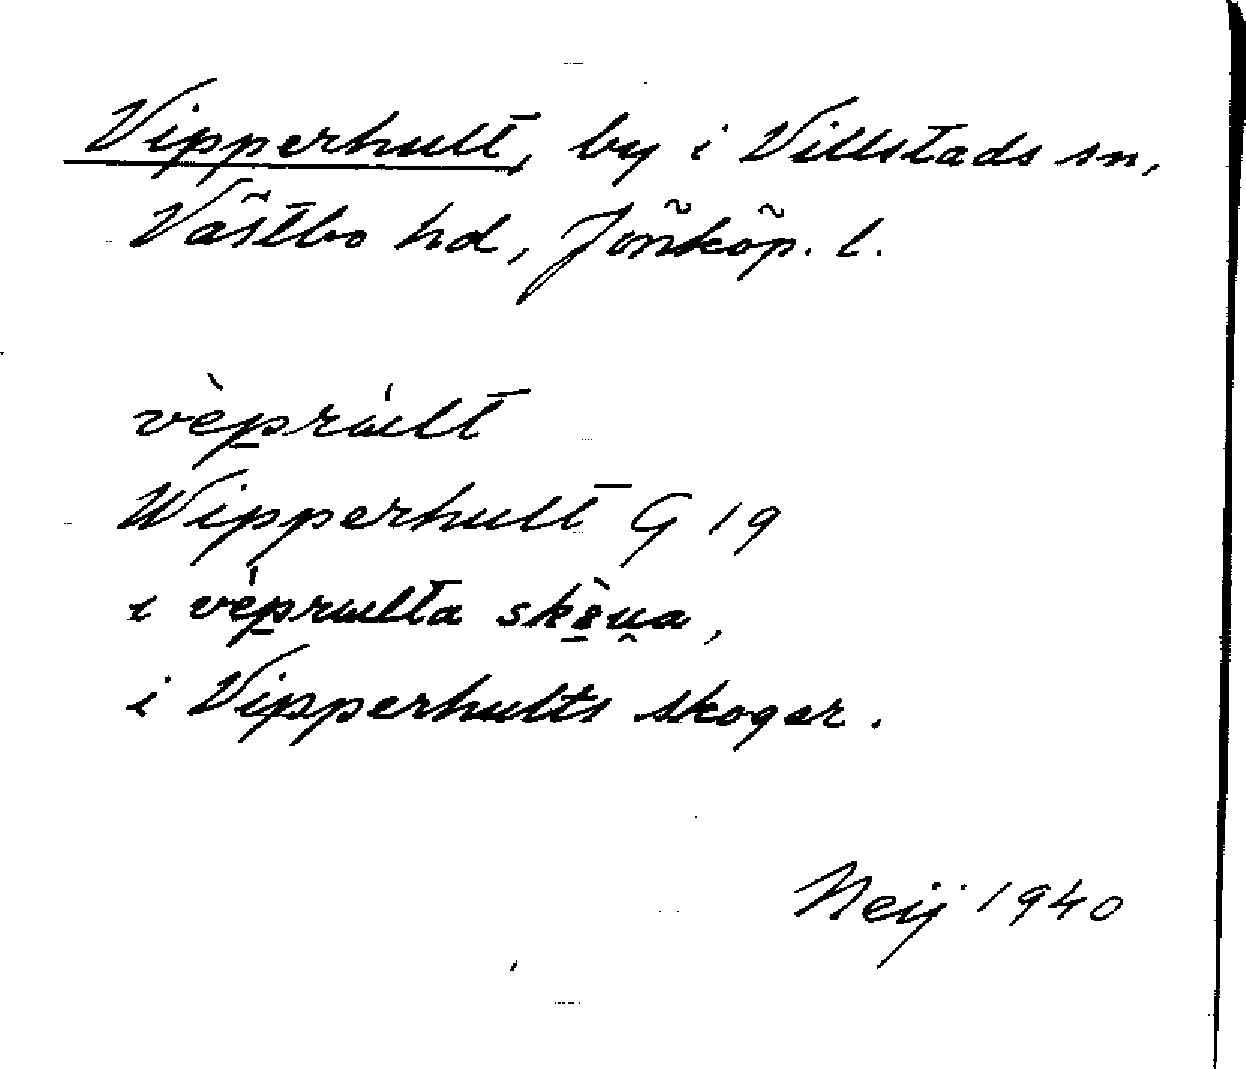 Vipperhult, by i Villstads sn,
Västbo hd, Jönköp. l.
vèp̲rúllt
Wipperhult G 19
i vèp̲rullta
i Vipperhults skogar.
Neij 1940